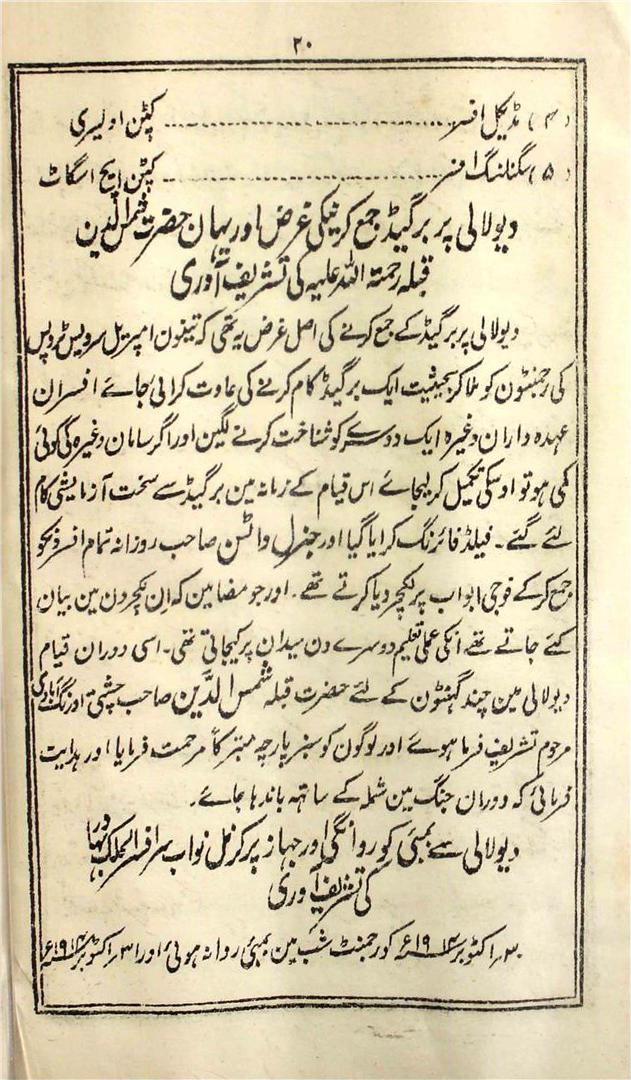 ۲۰
(۴) مڈیکل افسر ........................ کپٹن اولیری
(۵) سگنلنگ افسر ........................ کپٹن ایچ اسگاٹ
دیولالی پر برگیڈ جمع کرنیکی غرض اور یہان حضرت شمس الدین
قبلہ رحمتہ اللہ علیہ کی تشریف آوری
دیولالی پر برگیڈ کے جمع کرنے کی اصل غرض یہ تھی کہ تینون امپریل سرویس ٹروپس
کی رجمنٹون کو ملا کر بحیثیت ایک برگیڈ کام کرنے کی عادت کرائی جائے افسران
عہدہ داران وغیرہ ایک دوسرے کو شناخت کرنے لگین اور اگر سامان وغیرہ کی کوئی
کمی ہو تو اوسکی تکمیل کر لیجائے اس قیام کے زمانہ مین برگیڈ سے سخت آزمایشی کام
لئے گئے۔ فیلڈ فائرنگ کرایا گیا اور جنرل واٹسن صاحب روزانہ تمام افسرونکو
جمع کرکے فوجی ابواب پر لکچر دیا کرتے تھے۔ اور جو مضامین کہ اِن لکچرون مین بیان
کئے جاتے تھے اُنکی عملی تعلیم دوسرے دن میدان پر کیجاتی تھی۔ اسی دوران قیام
دیولالی مین چند گہنٹون کے لئے حضرت قبلہ شمس الدّین صاحب چشتی اورنگ آبادی
مرحوم تشریف فرما ہوے اور لوگون کو سبز پارچہ متبرکاً مرحمت فرمایا اور ہدایت
فرمائی کہ دوران جنگ مین شملہ کے ساتہہ باندہا جاے۔
دیولالی سے بمبئی کو روانگی اور جہاز پر کرنل نواب سر افسر الملک بہادر
کی تشریف آوری
۳۰؍ اکتوبر ۱۹۱۴ء کو رجمنٹ شب مین بمبئی روانہ ہوئی اور ۳۱؍ اکتوبر ۱۹۱۴ء